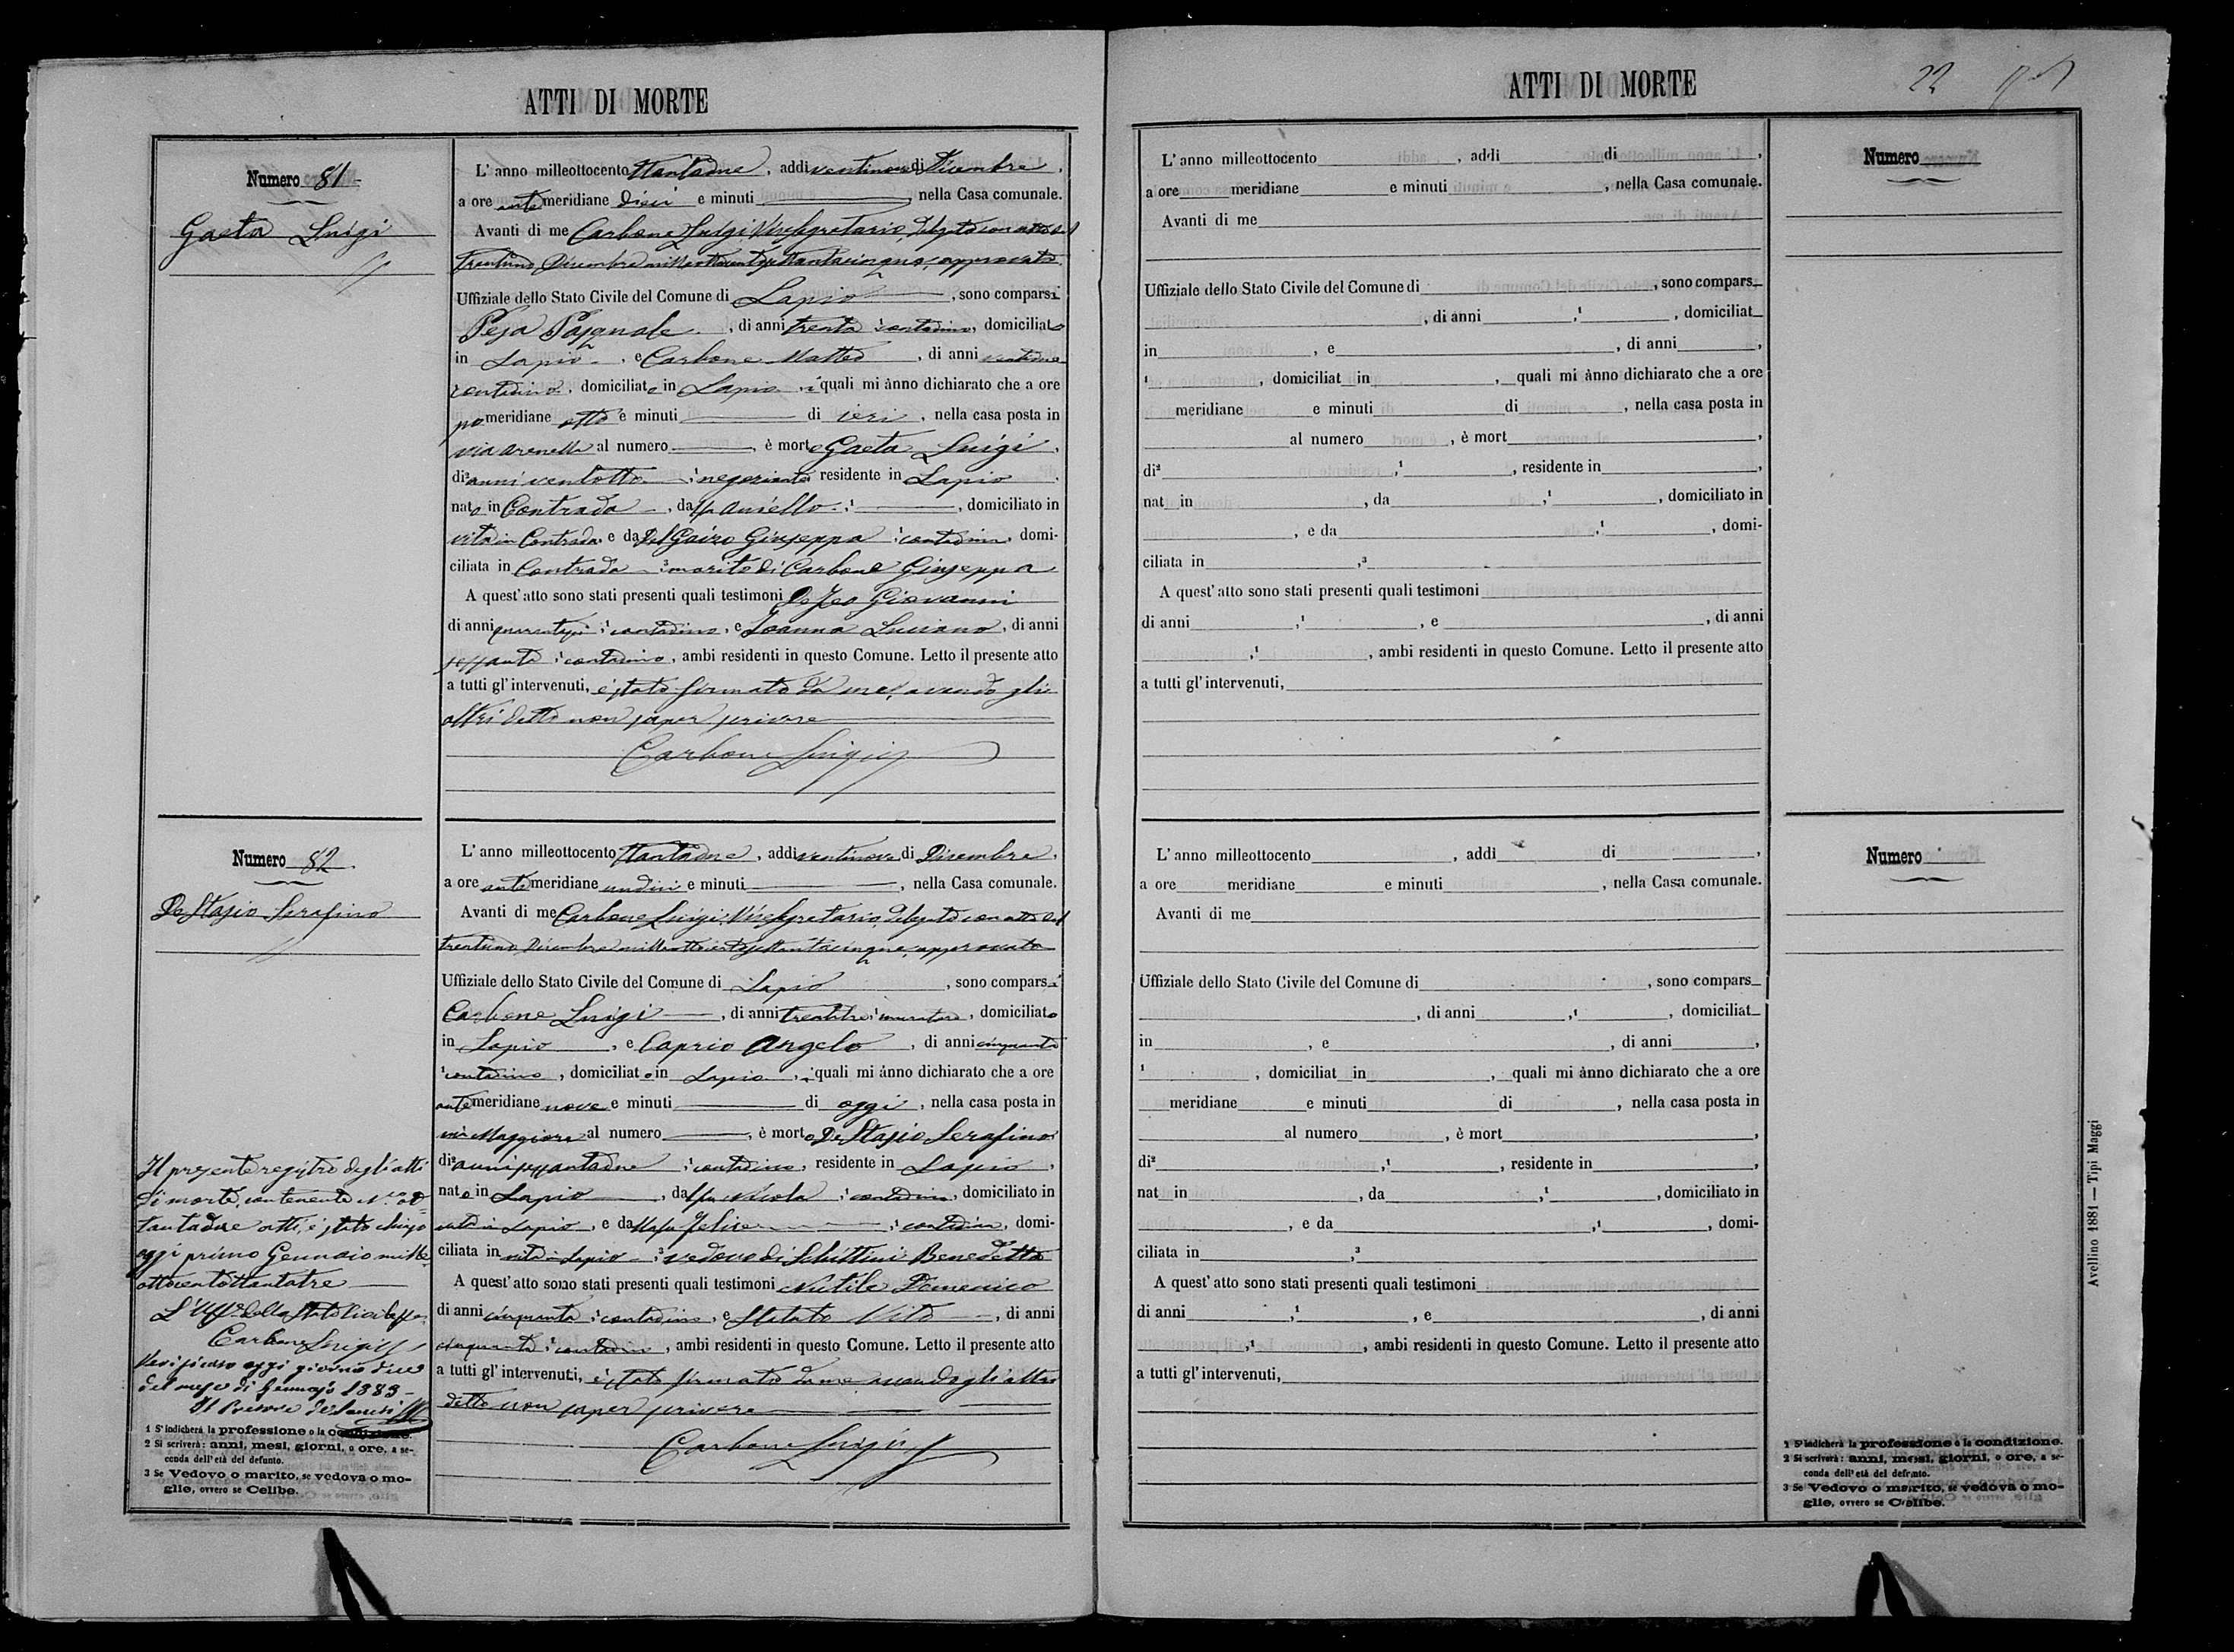 ATTI DI MORTE
Numero 81
Gaeta Luigi
L'anno milleottocento ttantadue, addi ventinove di Dicembre,
a ore ante meridiane dieci e minuti, nella Casa comunale.
Avanti di me Carbone Luigi, Vice Segretario, delegato con atto del
trentuno Dicembre milleottocentosettantacinque, approvato
Uffiziale dello Stato Civile del Comune di Lapio, sono comparsi
Pesa Pasquale, di anni trenta, ¹ contadino, domiciliato
in Lapio, e Carbone Matteo, di anni
contadino, domiciliato in Lapio, i quali mi ànno dichiarato che a ore
po meridiane otto e minuti di ieri, nella casa posta in
via Arenella al numero, è morto Gaeta Luigi,
di² anni ventotto, ¹ negoziante, residente in Lapio,
nato in Contrada, da fu Aniello, ¹, domiciliato in
vita in Contrada, e da Del Gaizo Giuseppa, ¹ contadina, domi-
ciliata in Contrada, ³ marito di Carbone Giuseppa
A quest'atto sono stati presenti quali testimoni De Feo Giovanni
di anni quarantasei, ¹ contadino, e Joanna Luciano, di anni
sessanta, ¹ contadino, ambi residenti in questo Comune. Letto il presente atto
a tutti gl'intervenuti, è stato firmato da me, avendo gli
altri detto non saper scrivere
Carbone Luigi
Numero 82
De Stasio Serafino
L'anno milleottocento ttantadue, addi ventinove di Dicembre,
a ore ante meridiane undici e minuti, nella Casa comunale.
Avanti di me Carbone Luigi, Vice Segretario, delegato con atto del
trentuno Dicembre milleottocentosettantacinque, approvato
Uffiziale dello Stato Civile del Comune di Lapio, sono comparsi
Carbone Luigi, di anni trentatre, ¹ muratore, domiciliato
in Lapio, e Caprio Angelo, di anni cinquanta
¹ contadino, domiciliato in Lapio, i quali mi ànno dichiarato che a ore
ante meridiane nove e minuti di oggi, nella casa posta in
via Maggiore al numero, è morto De Stasio Serafino
di² anni sessantadue, ¹ contadino, residente in Lapio,
nato in Lapio, da fu Nicola, ¹ contadino, domiciliato in
vita in Lapio, e da Felice, ¹ contadina, domi-
ciliata in vita in Lapio, ³ vedovo di Schittini Benedetta
A quest'atto sono stati presenti quali testimoni Nutile Domenico
di anni cinquanta, ¹ contadino, e Vito, di anni
cinquanta, ¹ contadino, ambi residenti in questo Comune. Letto il presente atto
a tutti gl'intervenuti, è stato firmato da me avendo gli altri
detto non saper scrivere
Carbone Luigi
Il presente registro degli atti
di morte, contenente N.ro ot=
tantadue atti, è stato chiuso
oggi primo Gennaio mille
ottocentottantatre
L'Uff.le dello Stato Civile
Carbone Luigi
Verificato oggi giorno dieci
del mese di Gennajo 1883
Il Pretore
1 S'indicherà la professione o la condizione.
2 Si scriverà: anni, mesi, giorni, o ore, a se-
conda dell'età del defunto.
3 Se Vedovo o marito, se vedova o mo-
glie, ovvero se Celibe.
ATTI DI MORTE
22
L'anno milleottocento, addi di,
a ore meridiane e minuti, nella Casa comunale.
Avanti di me
Uffiziale dello Stato Civile del Comune di, sono compars
, di anni, ¹, domiciliat
in, e, di anni,
¹, domiciliat in, quali mi ànno dichiarato che a ore
meridiane e minuti di, nella casa posta in
al numero, è mort,
di², ¹, residente in,
nat in, da, ¹, domiciliato in
, e da, ¹, domi-
ciliata in, ³
A quest'atto sono stati presenti quali testimoni
di anni, ¹, e, di anni
, ¹, ambi residenti in questo Comune. Letto il presente atto
a tutti gl'intervenuti,
Numero
L'anno milleottocento, addi di,
a ore meridiane e minuti, nella Casa comunale.
Avanti di me
Uffiziale dello Stato Civile del Comune di, sono compars
, di anni, ¹, domiciliat
in, e, di anni,
¹, domiciliat in, quali mi ànno dichiarato che a ore
meridiane e minuti di, nella casa posta in
al numero, è mort,
di², ¹, residente in,
nat in, da, ¹, domiciliato in
, e da, ¹, domi-
ciliata in, ³
A quest'atto sono stati presenti quali testimoni
di anni, ¹, e, di anni
, ¹, ambi residenti in questo Comune. Letto il presente atto
a tutti gl'intervenuti,
Numero
1 S'indicherà la professione o la condizione.
2 Si scriverà: anni, mesi, giorni, o ore, a se-
conda dell'età del defunto.
3 Se Vedovo o marito, se vedova o mo-
glie, ovvero se Celibe.
Avellino 1881 — Tipi Maggi